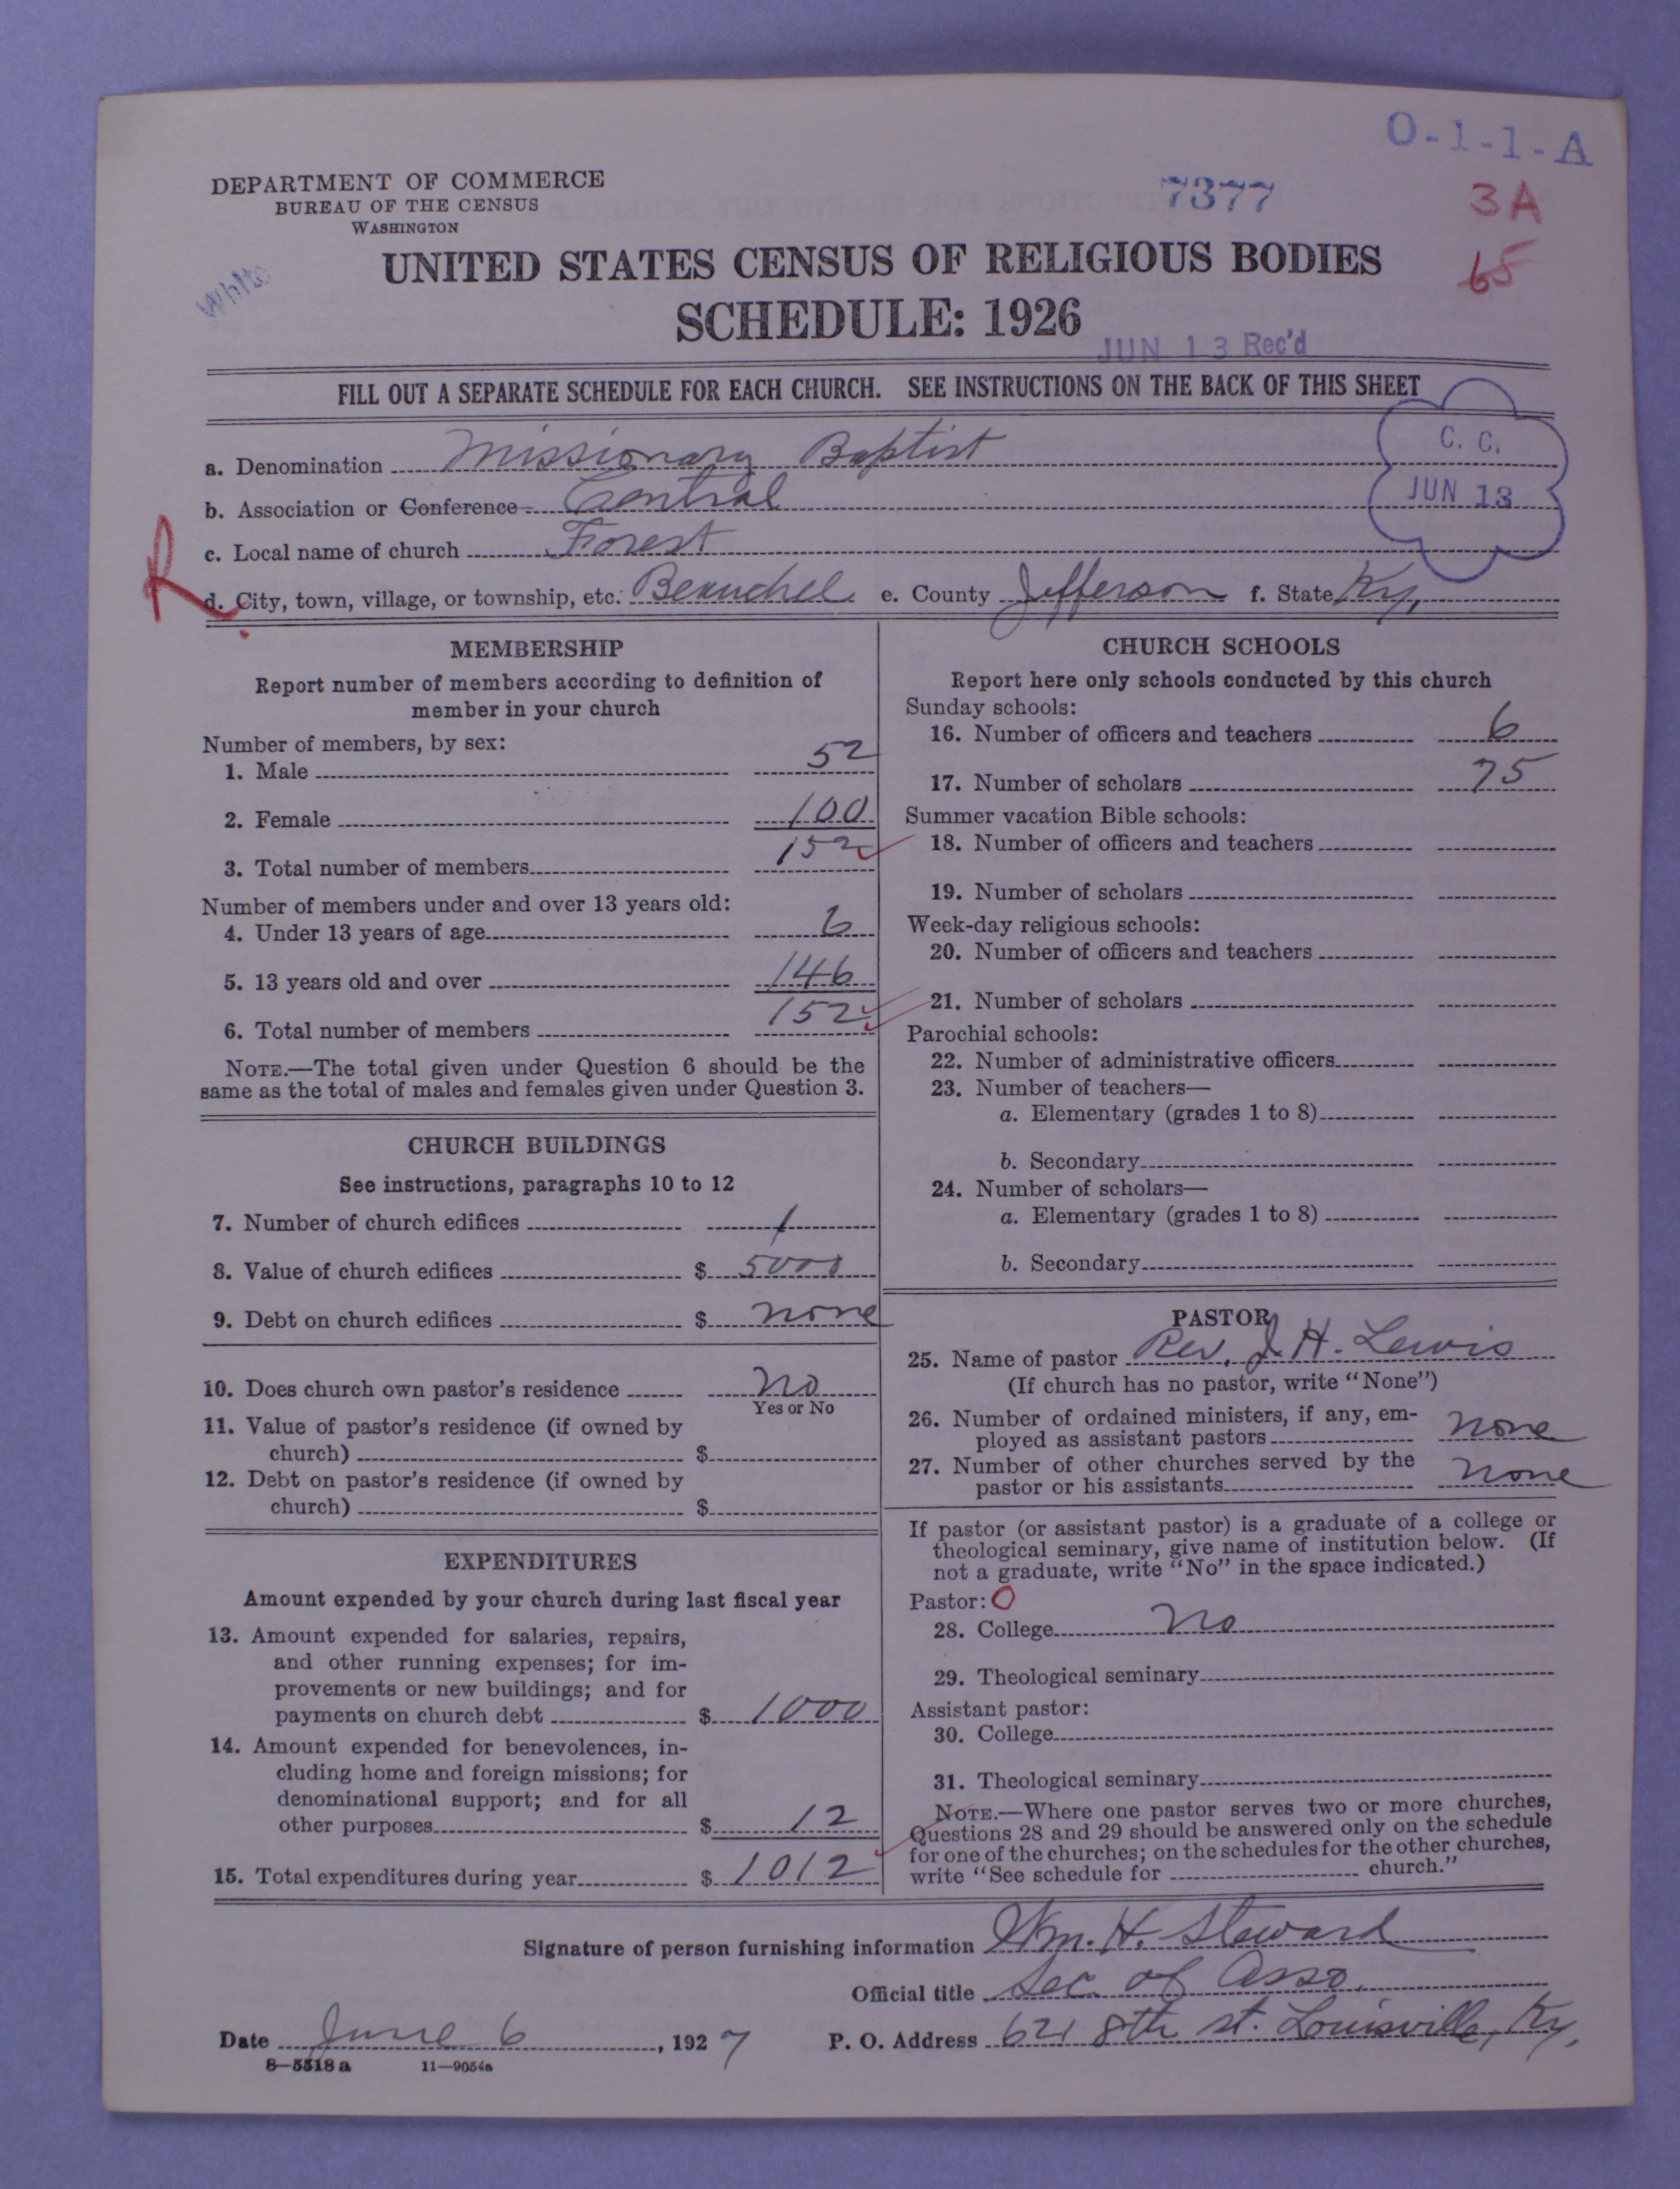 O-1-1-A
DEPARTMENT OF COMMERCE
BUREAU OF THE CENSUS
WASHINGTON
7377
3A
65
White
UNITED STATES CENSUS OF RELIGIOUS BODIES
SCHEDULE: 1926
JUN 13 Rec'd
FILL OUT A SEPARATE SCHEDULE FOR EACH CHURCH. SEE INSTRUCTIONS ON THE BACK OF THIS SHEET
C. C.
JUN 13
a. Denomination Missionary Baptist
b. Association or Conference Central
c. Local name of church Forest
R.
d. City, town, village, or township, etc. Beauchel e. County Jefferson f. State Ky.
MEMBERSHIP
Report number of members according to definition of
member in your church
Number of members, by sex:
1. Male 52
2. Female 100
3. Total number of members 152
Number of members under and over 13 years old:
4. Under 13 years of age 6
5. 13 years old and over 146
6. Total number of members 152
NOTE.—The total given under Question 6 should be the
same as the total of males and females given under Question 3.
CHURCH BUILDINGS
See instructions, paragraphs 10 to 12
7. Number of church edifices 1
8. Value of church edifices $ 5000
9. Debt on church edifices $ none
10. Does church own pastor's residence no
Yes or No
11. Value of pastor's residence (if owned by
church) $
12. Debt on pastor's residence (if owned by
church) $
EXPENDITURES
Amount expended by your church during last fiscal year
13. Amount expended for salaries, repairs,
and other running expenses; for im-
provements or new buildings; and for
payments on church debt $ 1000
14. Amount expended for benevolences, in-
cluding home and foreign missions; for
denominational support; and for all
other purposes $ 12
15. Total expenditures during year $ 1012
CHURCH SCHOOLS
Report here only schools conducted by this church
Sunday schools:
16. Number of officers and teachers 6
17. Number of scholars 75
Summer vacation Bible schools:
18. Number of officers and teachers
19. Number of scholars
Week-day religious schools:
20. Number of officers and teachers
21. Number of scholars
Parochial schools:
22. Number of administrative officers
23. Number of teachers—
a. Elementary (grades 1 to 8)
b. Secondary
24. Number of scholars—
a. Elementary (grades 1 to 8)
b. Secondary
PASTOR
25. Name of pastor Rev. J. H. Lewis
(If church has no pastor, write "None")
26. Number of ordained ministers, if any, em-
ployed as assistant pastors none
27. Number of other churches served by the
pastor or his assistants none
If pastor (or assistant pastor) is a graduate of a college or
theological seminary, give name of institution below. (If
not a graduate, write "No" in the space indicated.)
Pastor: O
28. College no
29. Theological seminary
Assistant pastor:
30. College
31. Theological seminary
NOTE.—Where one pastor serves two or more churches,
Questions 28 and 29 should be answered only on the schedule
for one of the churches; on the schedules for the other churches,
write "See schedule for church."
Signature of person furnishing information Wm. H. Steward
Official title Sec. of Asso.
Date June 6, 1927 P. O. Address 621 8th st. Louisville, Ky.
8—5518 a 11—9054a